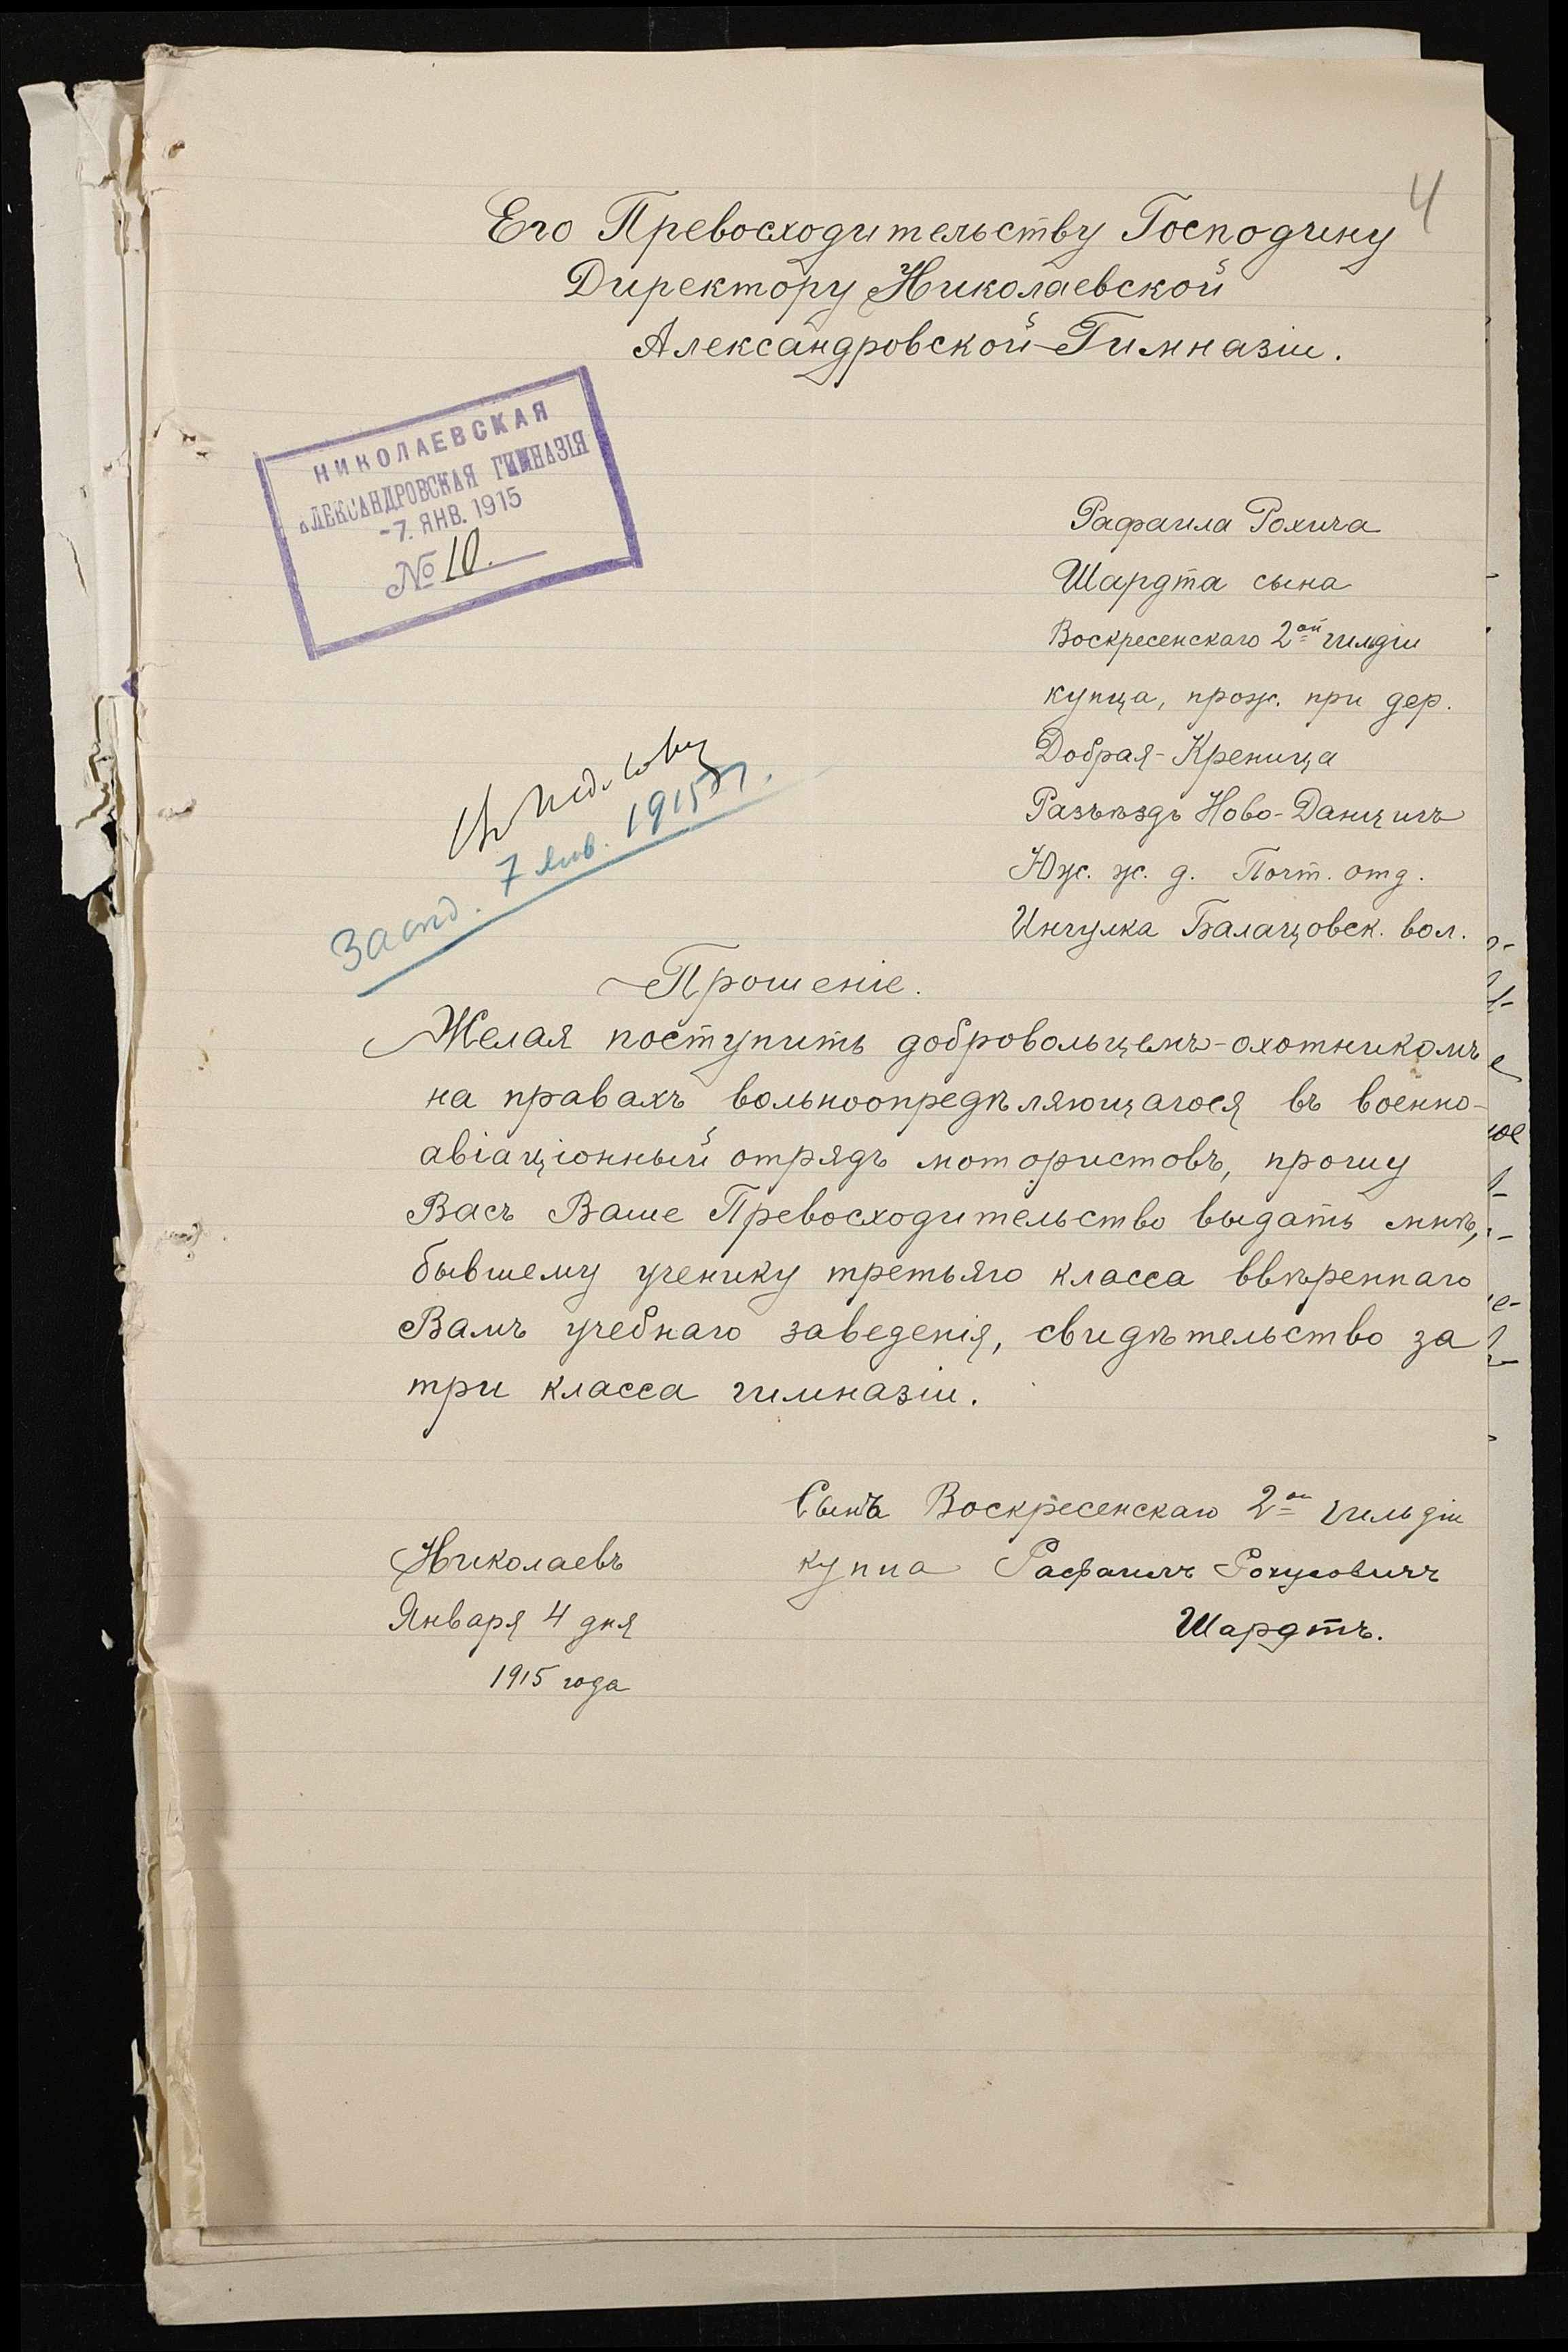 4
Его Превосходительству Господину
Директору Николаевской
Александровской Гимназіи.
НИКОЛАЕВСКАЯ
АЛЕКСАНДРОВСКАЯ ГИМНАЗІЯ
-7. ЯНВ. 1915
№ 10.
Рафаила Рохича
Шардта сына
Воскресенскаго 2ой гильдіи
купца, прож. при дер.
Добрая-Креница
Разъѣздъ Ново-Данцигъ
Юж. ж. д. Почт. отд.
Ингулка Балацовск. вол.
7 янв. 1915 г.
Прошеніе.
Желая поступить добровольцемъ-охотникомъ
на правахъ вольноопредѣляющагося въ военно-
авіаціонный отрядъ мотористовъ, прошу
Васъ Ваше Превосходительство выдать мнѣ,
бывшему ученику третьяго класса ввѣреннаго
Вамъ учебнаго заведенія, свидѣтельство за
три класса гимназіи.
Сынъ Воскресенскаго 2ой гильдіи
купца Рафаилъ Рохусовичъ
Шардтъ.
Николаевъ
Января 4 дня
1915 года